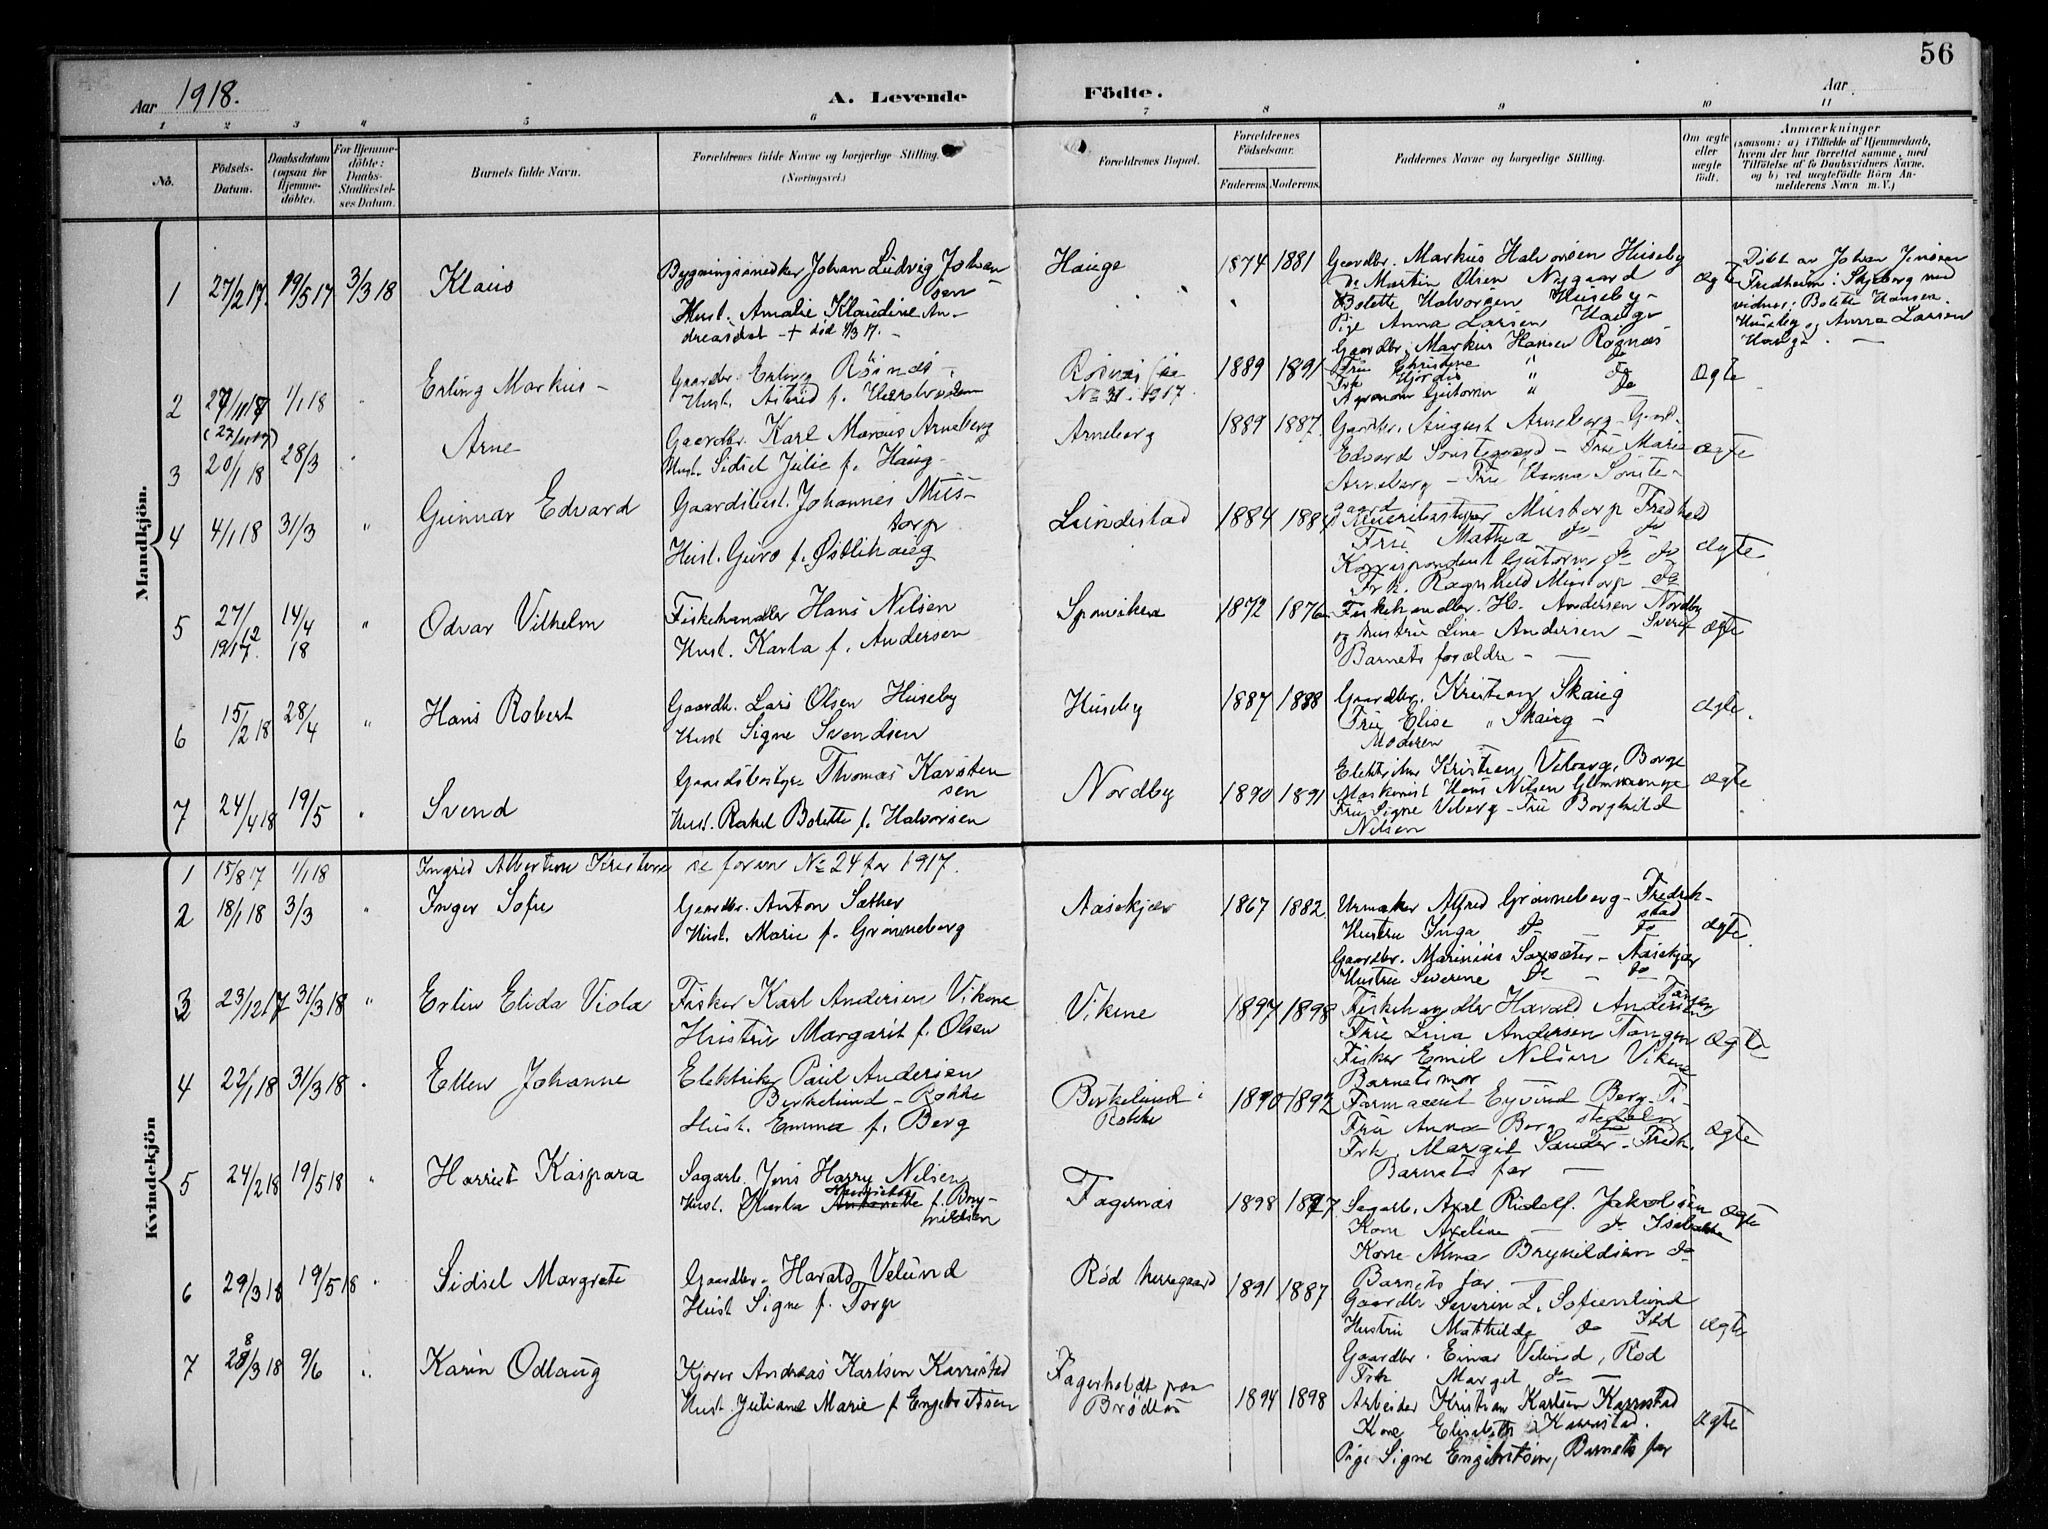 56
Aar 1918.
A. Levende Födte.
Aar
1 2 3 4 5 6 7 8 9 10 11
No.
Födsels-Datum.
Daabsdatum (ogsaa for Hjemme-döbte).
For Hjemme-döbte: Daabs-Stadfæstel-ses Datum.
Barnets fulde Navn.
Forældrenes fulde Navne og borgerlige Stilling. (Næringsvei.)
Forældrenes Bopæl.
Forældrenes Födselsaar.
Faderens. Moderens.
Faddernes Navne og borgerlige Stilling.
Om ægte eller uægte födt.
Anmærkninger
(saasom: a) i Tilfælde af Hjemmedaab, hvem der har forrettet samme, med Tilföielse af to Daabsvidners Navne, og b) ved uægtefödte Börn Anmelderens Navn m. V.)
Mandkjön.
1 27/2 17. 19/5 17 3/3 18 Klaus
Bygningssnedker Johan Ludvig Johan-
sen
Hust. Amalie Klaudine An-
dreasdat - + död 4/3 17. -
Hauge 1874 1881
Gaardbr. Markus Halvorsen Huseby
Do Martin Olsen Nygaard
Bolette Halvorsen Huseby -
Pige Anna Larsen Hauge
ægte
Döbt av Johan Jensen
Fredheim i Skjeberg med
vidner: Bolette Hansen
Huseby og Anna Larsen
Hauge. -
2 1/1 18 Erling Markus -
Gaardbr. Erling Rösnæs.
Hust. Astrid f.
No 31. 1917. 1889 1891
Gaardbr. Markus Hansen Rösnæs
Fru Christine " Do
Frk Hjördis " Do
Agronom Guttorm " Do
ægte
(27/11 17)
3 20/1 18 28/3 Arne
Gaardbr. Karl Marius Arneberg
Hust. Sidsel Julie f. Haug -
Arneberg 1889 1887
Gaardbr. August Arneberg - Gaardb.
Edvard Sönstegaard - Fru Marie
Arneberg - Fru Hanna Sönste-
gaard
ægte
4 4/1 18 31/3 " Gunnar Edvard
Gaardsbest. Johannes Mus-
torp
Hust. Guro f. Østlihaug
Lundestad 1884 1884
Mustorp Fredhald
Frue Mathea do do
Korrespondent Guttorm do do
Frk. Ragnhild Mustorp do
ægte
5 27/12 1917. 14/4 18 " Odvar Vilhelm
Fiskehandler Hans Nilsen
Hust. Karla f. Andersen
Sponviken 1872 1876
Fiskehandler. H. Andersen Nordby
og hustru Lina Andersen - Sverige
Barnets forældre -
ægte
6 15/2 18 28/4 " Hans Robert
Gaardb. Lars Olsen Huseby
Hust Signe Svendsen
Huseby 1887 1888
Gaardbr. Kristian Skaug
Fru Elise " Skaug -
Moderen
ægte.
7 24/4 18 19/5 " Svend
Gaardsbestyrer Thomas Karsten
sen
Hust. Rakel Bolette f. Halvorsen
Nordby 1890 1891
Elektriker Kristian Viberg, Borge
Maskinist Hans Nilsen
Fru Signe Viberg - Fru Borghild
Nilsen
ægte
Kvindekjön
1 15/8 17 1/1 18 Ingrid Albertine Kristine se foran No 24 for 1917.
2 18/1 18 3/3 " Inger Sofie
Gaardbr. Anton Sæther
Hust. Marie f. Grönneberg
Aasekjær 1867 1882
Urmaker Alfred Grönneberg - Fredrik-
stad
Hustru Inga Do Do
Gaardbr. Marinius - Aasekjær
Hustru Severine do - do
ægte.
3 23/12 17 31/3 18 " Erlin Elida Viola
Fisker Karl Andersen Vikene
Hustru Margarit f. Olsen
Vikene 1897 1898
Fiskehandler Harald Andersen
Tangen
Frue Lina Andersen Tangen
Fisker Emil Nilsen Vikene
Barnets mor
ægte
4 22/1 18 31/3 18 " Ellen Johanne
Elektriker Paul Andersen
Birkelund - Rokke
Hust. Emma f. Berg
Birkelund i
Rokke 1890 1892
Farmaceut Eyvind Berg - Ti-
stedalen
Fru Anna Berg
Frk. Margit Sander - Fredh.
Barnets far -
ægte
5 24/2 18 19/5 18 " Harriet Kaspara
Sagarb. Jens Harry Nilsen
Hust. Karla f. Bry-
nildsen
Fagernæs 1898 1897
Sagarb. Axel Rudolf. Jakobsen
Kone Axeline - do
Kone Alma Brynildsen do
Barnets far
ægte
6 29/3 18 19/5 18 " Sidsel Margrete
Gaardbr. Harald Velund
Hust Signe f. Torp
Rød herregaard 1891 1887
Gaardbr Severin L. Sofienlund
Hustru Mathilde do Idd
Gaardbr. Einar Velund, Rød
Frk Margit do -
ægte
7 28/3 18 9/6 " Karin Odlaug
Kjörer Andreas Karlsen Karrestad
Hust. Juliane Marie f Engebretsen
Fagerholdt paa
Brödløs 1894 1898
Arbeider Kristian Karlsen Karrestad
Kone Elisabeth Karrestad.
Pige Signe Engebretsen, Barnets far
ægte